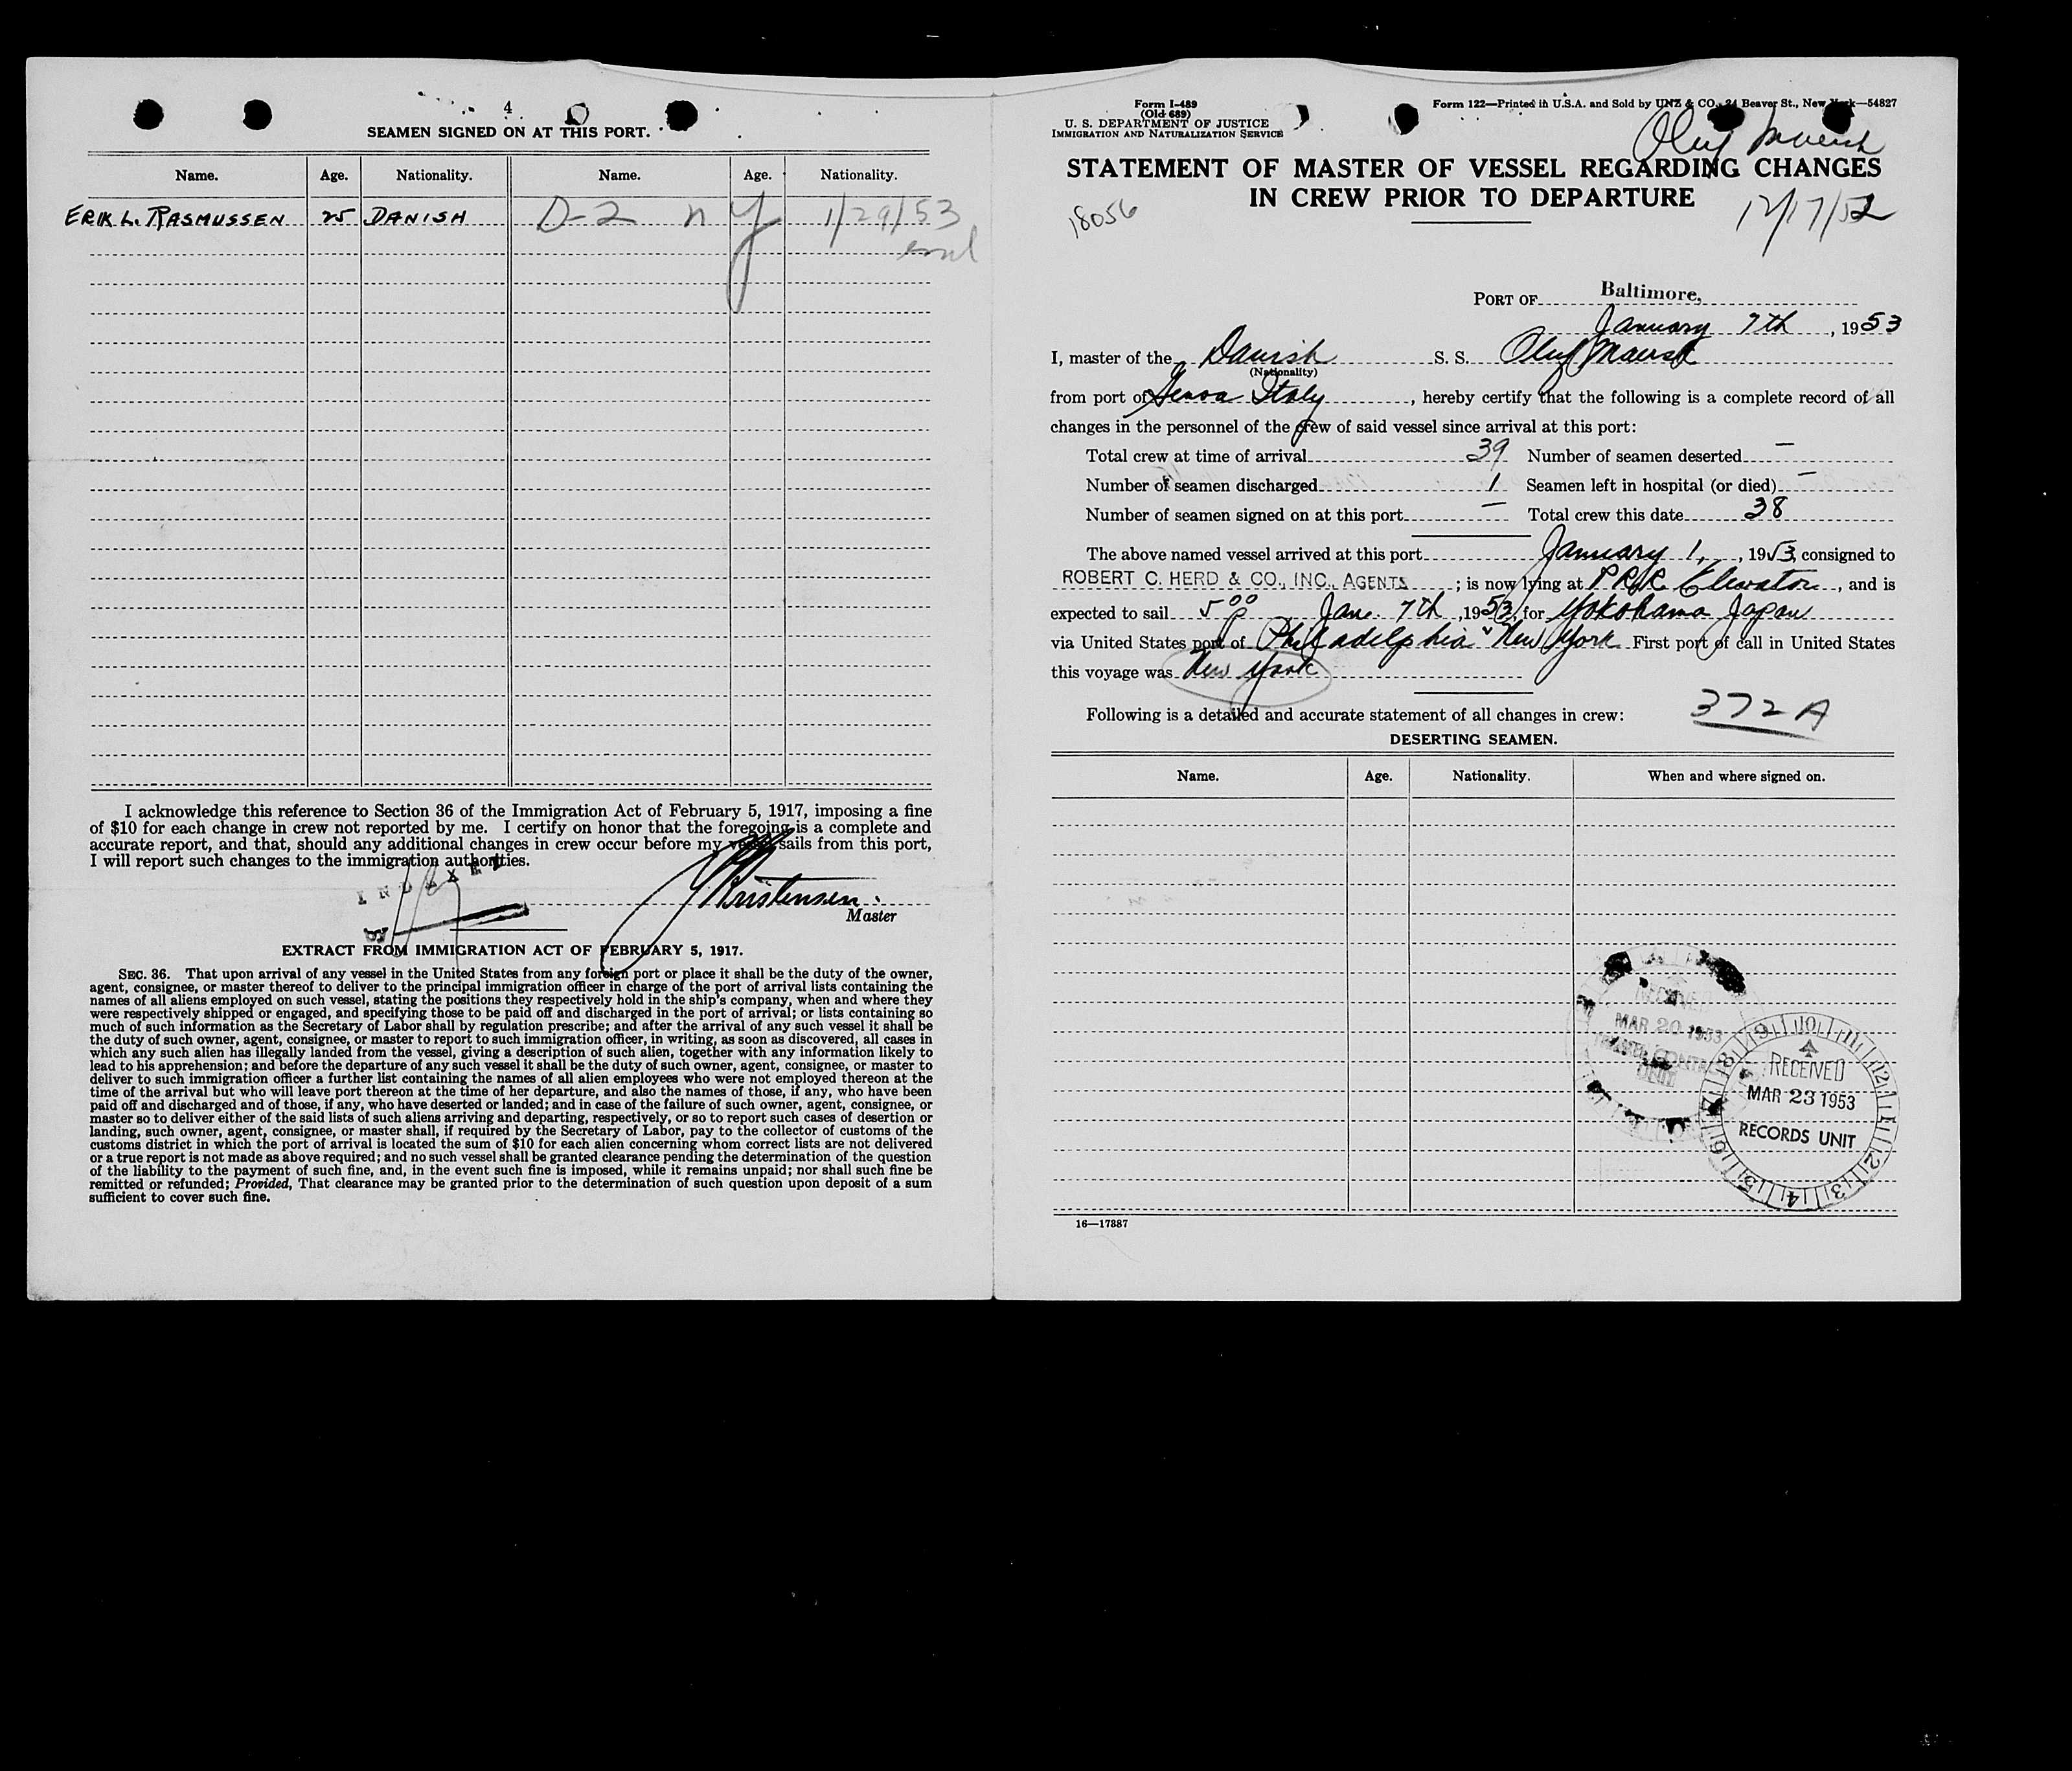 4
SEAMEN SIGNED ON AT THIS PORT.
Name. Age. Nationality. Name. Age. Nationality.
ERIK L. RASMUSSEN 25 DANISH D-2 n y 1/29/53
I acknowledge this reference to Section 36 of the Immigration Act of February 5, 1917, imposing a fine
of $10 for each change in crew not reported by me. I certify on honor that the foregoing is a complete and
accurate report, and that, should any additional changes in crew occur before my vessel sails from this port,
I will report such changes to the immigration authorities.
INDEXED
Kristensen
Master
EXTRACT FROM IMMIGRATION ACT OF FEBRUARY 5, 1917.
SEC. 36. That upon arrival of any vessel in the United States from any foreign port or place it shall be the duty of the owner,
agent, consignee, or master thereof to deliver to the principal immigration officer in charge of the port of arrival lists containing the
names of all aliens employed on such vessel, stating the positions they respectively hold in the ship's company, when and where they
were respectively shipped or engaged, and specifying those to be paid off and discharged in the port of arrival; or lists containing so
much of such information as the Secretary of Labor shall by regulation prescribe; and after the arrival of any such vessel it shall be
the duty of such owner, agent, consignee, or master to report to such immigration officer, in writing, as soon as discovered, all cases in
which any such alien has illegally landed from the vessel, giving a description of such alien, together with any information likely to
lead to his apprehension; and before the departure of any such vessel it shall be the duty of such owner, agent, consignee, or master to
deliver to such immigration officer a further list containing the names of all alien employees who were not employed thereon at the
time of the arrival but who will leave port thereon at the time of her departure, and also the names of those, if any, who have been
paid off and discharged and of those, if any, who have deserted or landed; and in case of the failure of such owner, agent, consignee, or
master so to deliver either of the said lists of such aliens arriving and departing, respectively, or so to report such cases of desertion or
landing, such owner, agent, consignee, or master shall, if required by the Secretary of Labor, pay to the collector of customs of the
customs district in which the port of arrival is located the sum of $10 for each alien concerning whom correct lists are not delivered
or a true report is not made as above required; and no such vessel shall be granted clearance pending the determination of the question
of the liability to the payment of such fine, and, in the event such fine is imposed, while it remains unpaid; nor shall such fine be
remitted or refunded; Provided, That clearance may be granted prior to the determination of such question upon deposit of a sum
sufficient to cover such fine.
Form I-489
(Old 689)
U. S. DEPARTMENT OF JUSTICE
IMMIGRATION AND NATURALIZATION SERVICE
Form 122—Printed in U.S.A. and Sold by UNZ & CO., 24 Beaver St., New York—54827
Oluf Maersk
STATEMENT OF MASTER OF VESSEL REGARDING CHANGES
IN CREW PRIOR TO DEPARTURE
18056
12/17/52
PORT OF Baltimore,
January 7th, 1953
I, master of the Danish S. S. Oluf Maersk
(Nationality)
from port of Genoa Italy, hereby certify that the following is a complete record of all
changes in the personnel of the crew of said vessel since arrival at this port:
Total crew at time of arrival 39 Number of seamen deserted —
Number of seamen discharged 1 Seamen left in hospital (or died) —
Number of seamen signed on at this port — Total crew this date 38
The above named vessel arrived at this port January 1, 1953, consigned to
ROBERT C. HERD & CO., INC., AGENTS; is now lying at PRR Elevator, and is
expected to sail 5 00 p Jan. 7th, 1953, for Yokohama Japan
via United States port of Philadelphia New York First port of call in United States
this voyage was New York
Following is a detailed and accurate statement of all changes in crew: 372 A
DESERTING SEAMEN.
Name. Age. Nationality. When and where signed on.
RECEIVED
MAR 20 1953
UNIT
9 10 11 12 1 2 3 4 5 6 7 8
RECEIVED
MAR 23 1953
RECORDS UNIT
16—17887